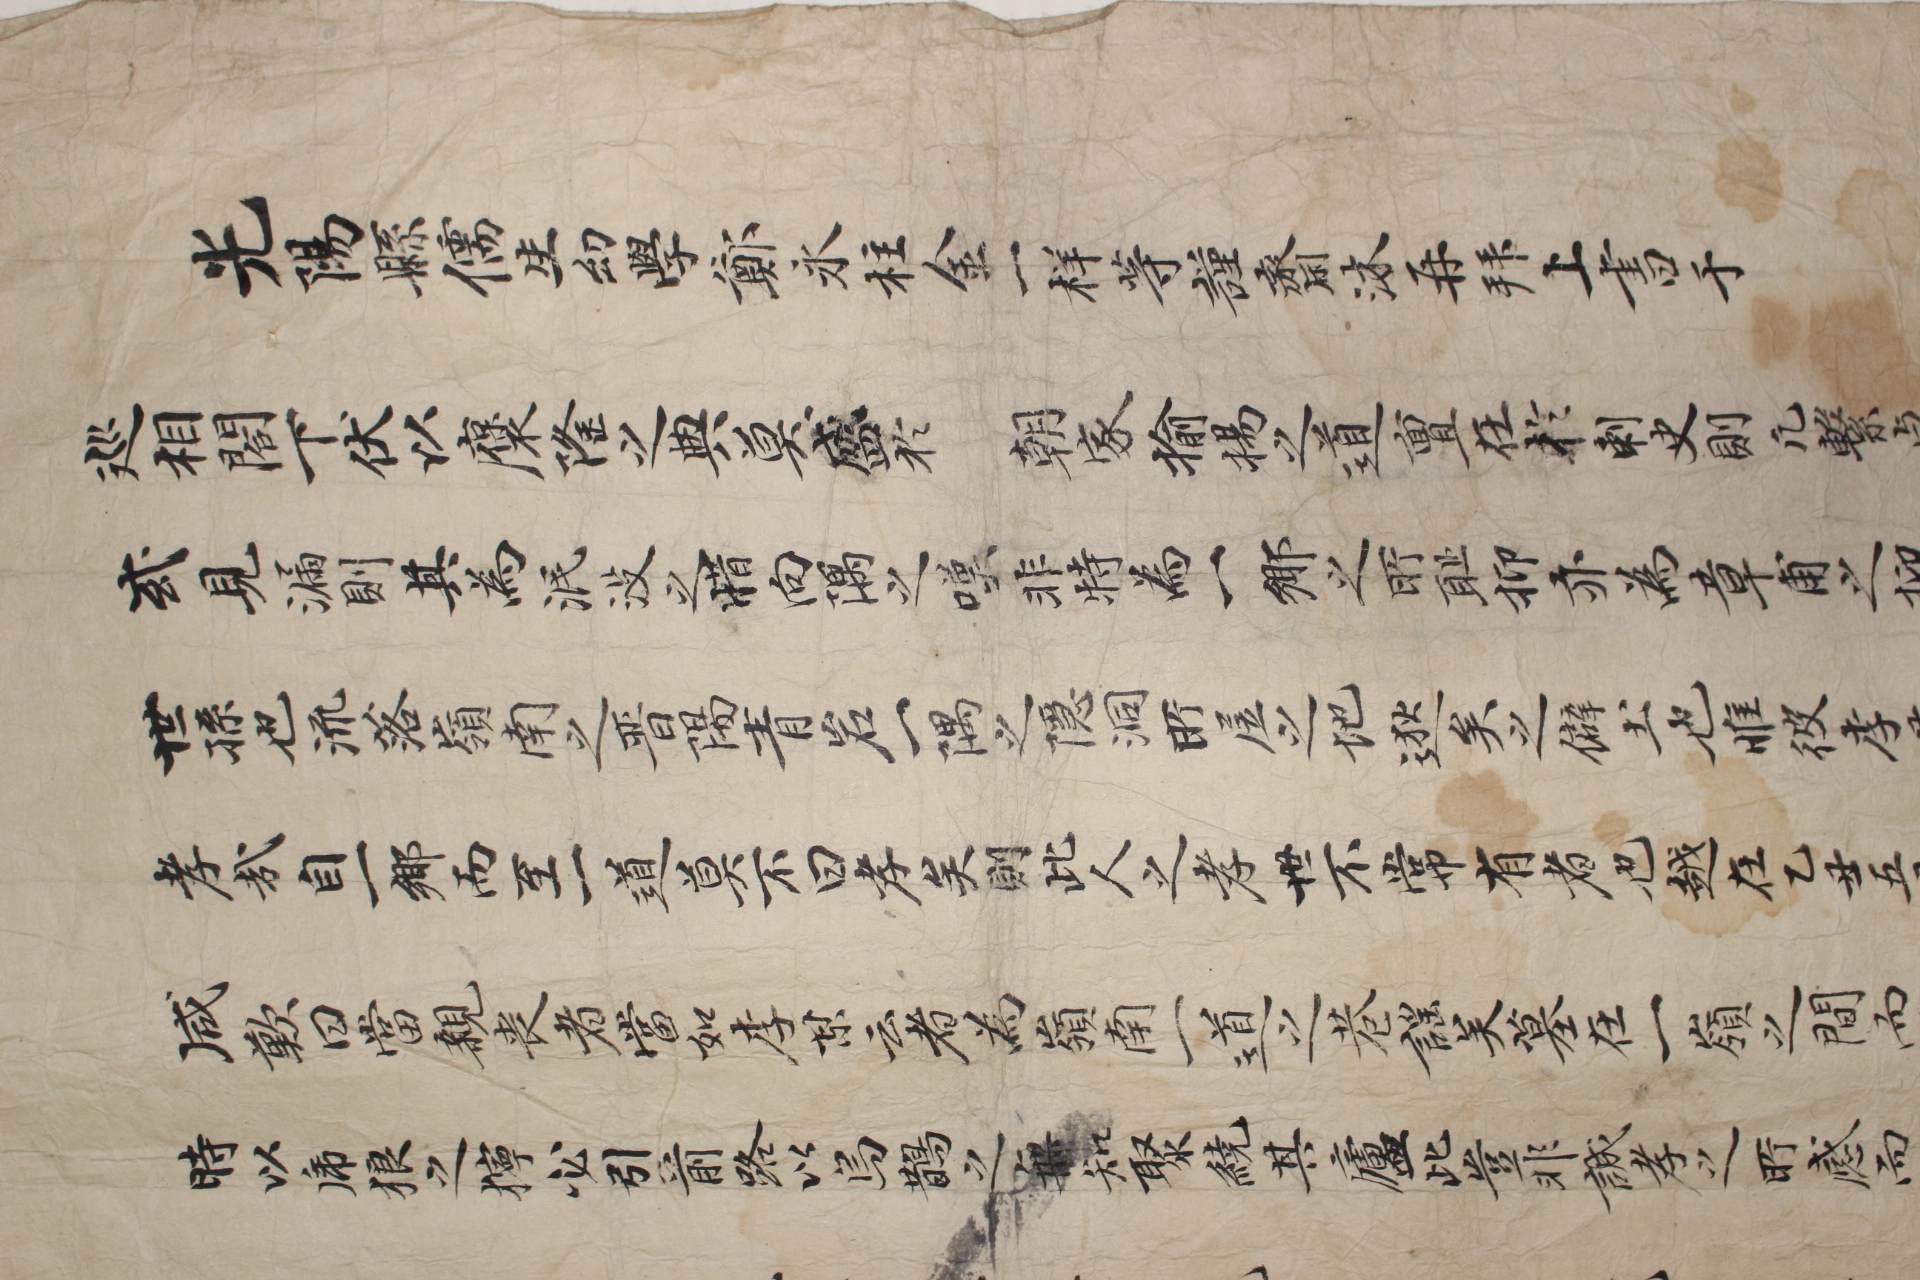 光陽縣儒生幼學鄭永柱金一样等謹齋沐再拜上書于
巡相閤下伏以褒隆之典莫盛於 朝家揄揚之道亶在於刺史則凡繫
或見漏則其為泯沒之惜向隅之嘆非特為一鄉之所耻抑亦為章甫之抑
世孫也流落嶺南之晋陽青岩一隅之隱洞所居之地逖矣之僻土也唯彼李
孝哉自一鄉而至一道莫不曰孝矣則此人之孝世不常有者也越在乙丑五
咸歎曰當親丧者當如李某云者為嶺南一道之巷謠矣墓在一嶺之間而
時以席狼之獰必引前路以烏鵲之無知聚繞其廬此豈非誠孝之所感而